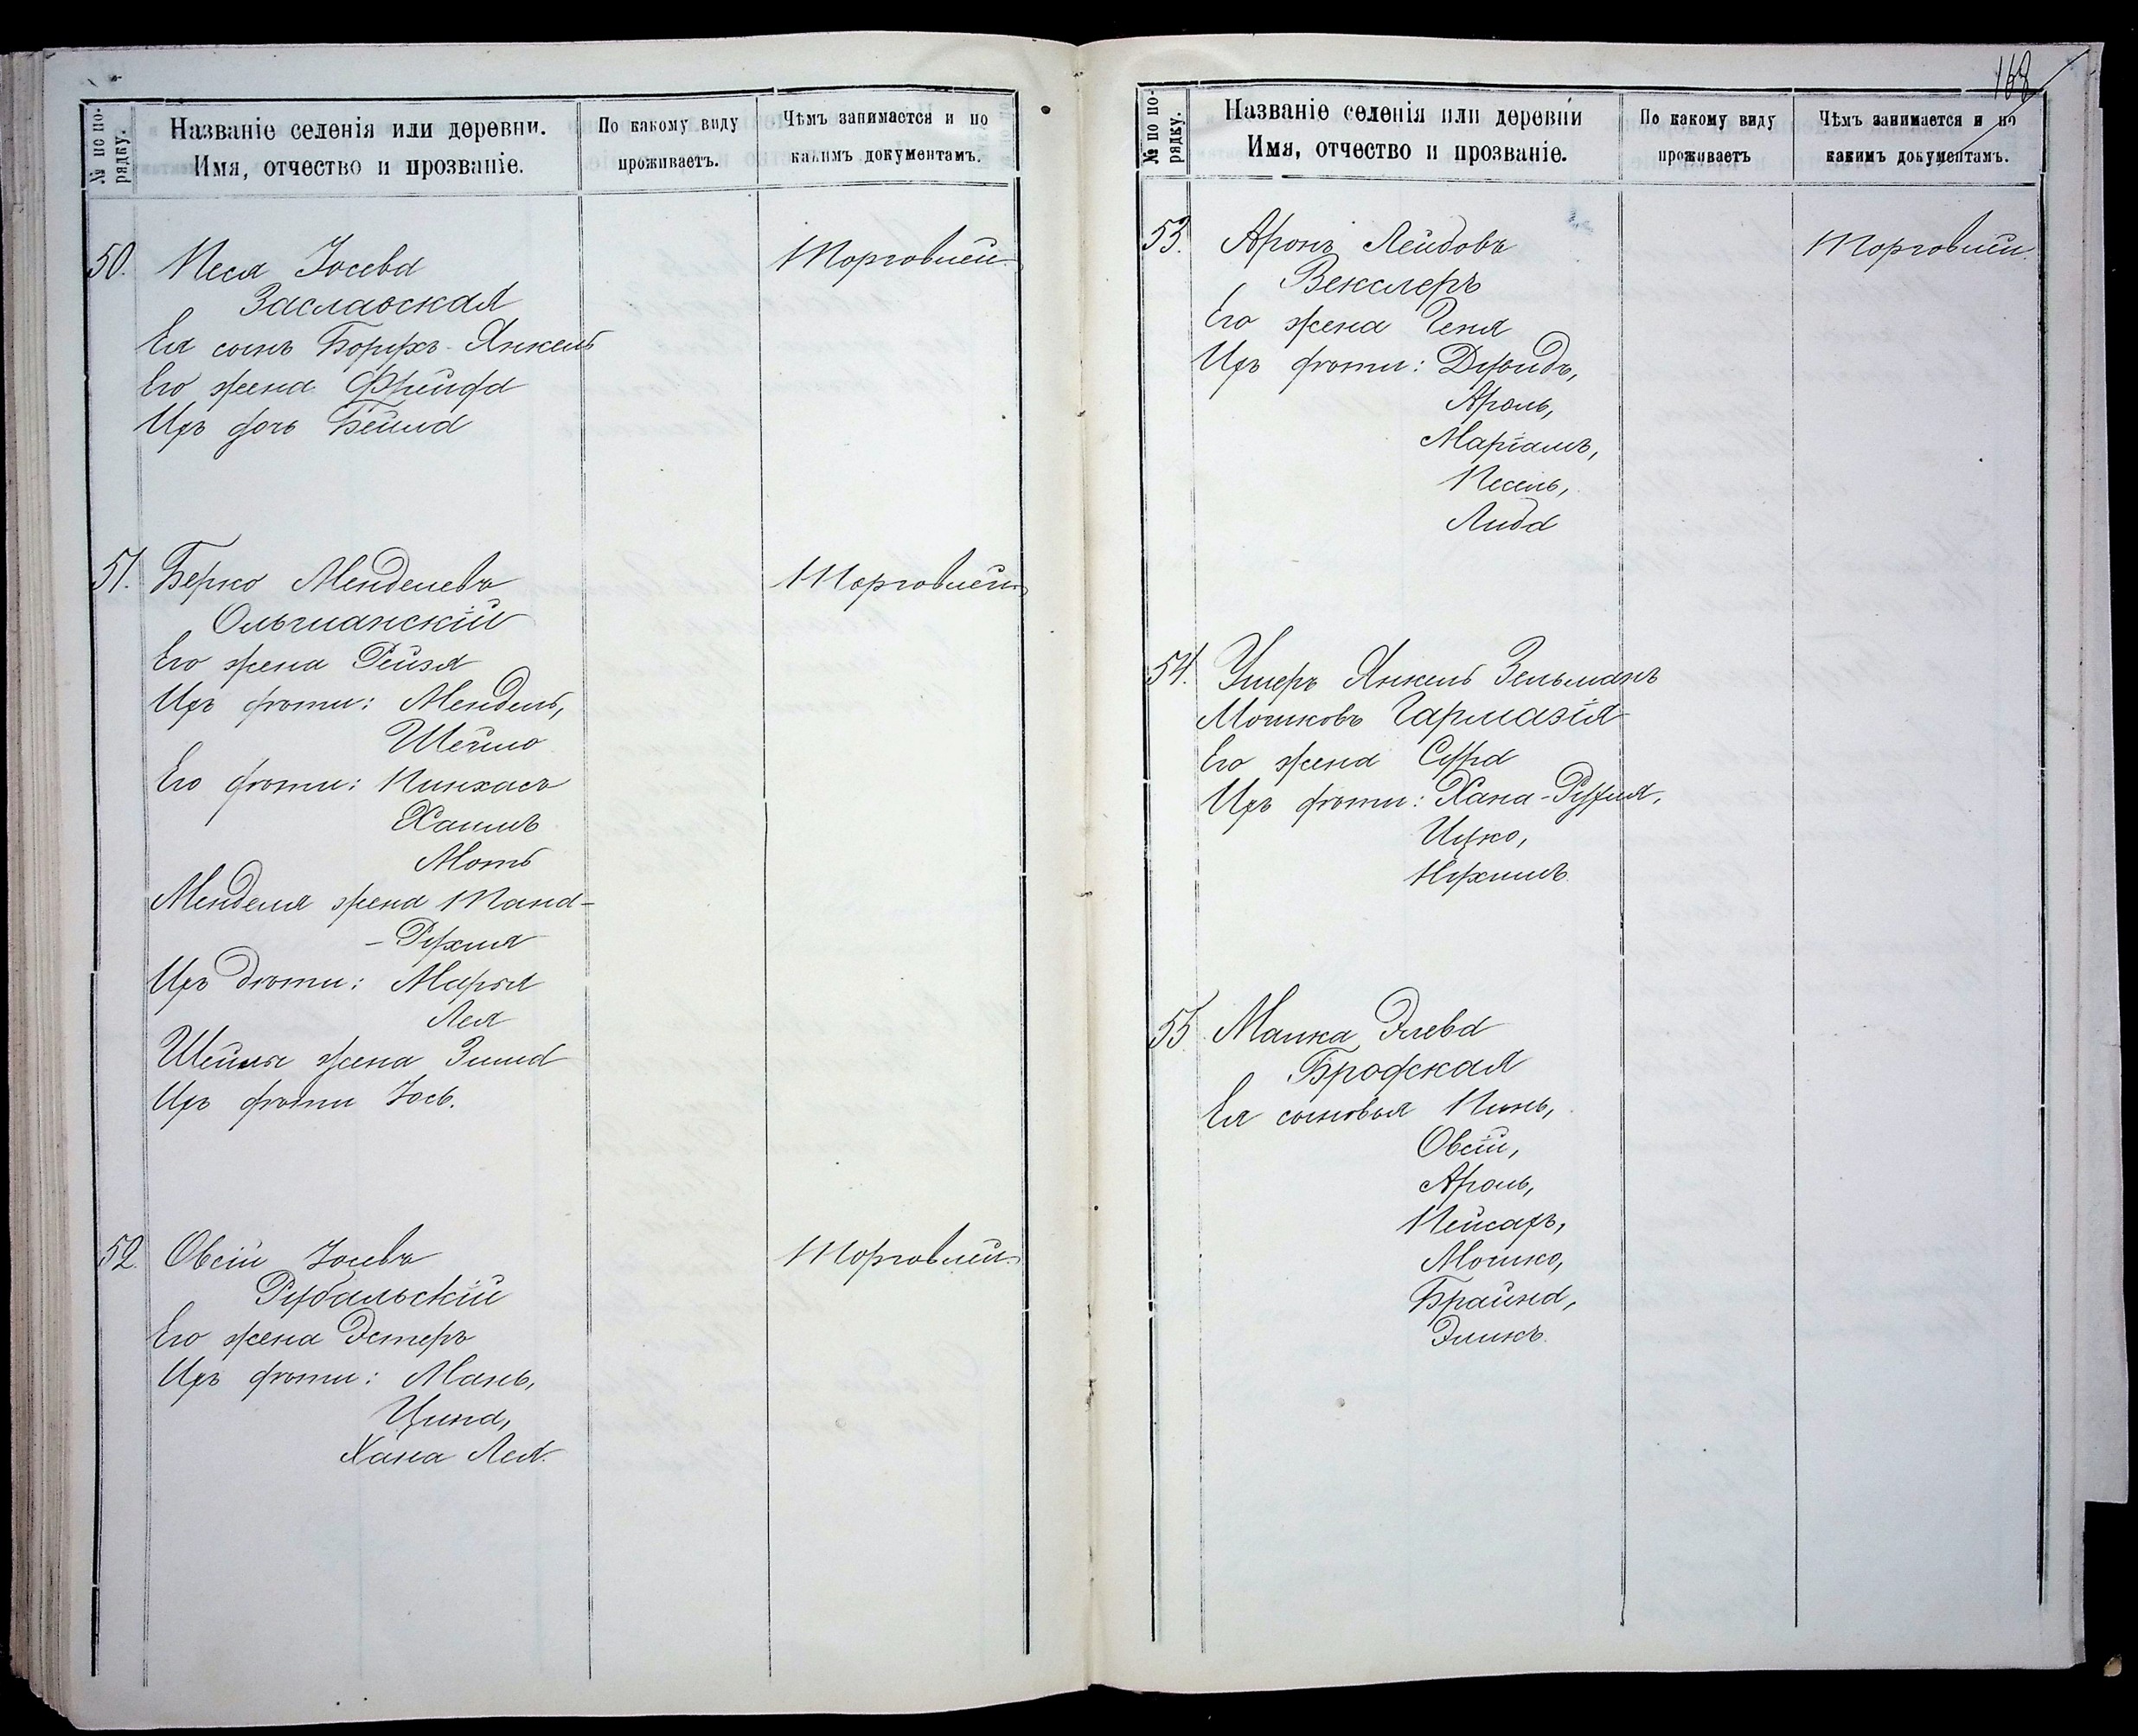 № по по-
рядку.
Названіе селенія или деревни.
Имя, отчество и прозваніе.
По какому виду
проживаетъ.
Чѣмъ занимается и по
какимъ документамъ.
50. Песя Іосева Торговлей
Заславская
Ея сынъ Борухъ-Янкель
Его жена Фрейда
Ихъ дочь Бейла
51. Берко Менделевъ Торговлей
Ольшанскій
Его жена Рейзя
Ихъ дѣти: Мендель,
Шеймо
Его дѣти: Пинхасъ
Хаимъ
Моть
Менделя жена Мана-
-Рухля
Ихъ дѣти: Марья
Лея
Шеймы жена Зима
Ихъ дѣти Іось.
52. Овсій Іосевъ Торговлей
Рубальскій
Его жена Эстеръ
Ихъ дѣти: Мань,
Ципа,
Хана Лея.
168
№ по по-
рядку.
Названіе селенія или деревни
Имя, отчество и прозваніе.
По какому виду
проживаетъ
Чѣмъ занимается и по
какимъ документамъ.
53. Аронъ Лейбовъ Торговлей.
Векслеръ
Его жена Геня
Ихъ дѣти: Дувидъ,
Ароль,
Маріамъ,
Песель,
Либа
54. Ушеръ Янкель Зельманъ
Мошковъ Гармазія
Его жена Сура
Ихъ дѣти: Хана-Рухля,
Ицко,
Нухимъ.
55 Малка Элева
Бродская
Ея сыновья Пинь,
Овсій,
Ароль,
Пейсахъ,
Мошко,
Брайна,
Эликъ.